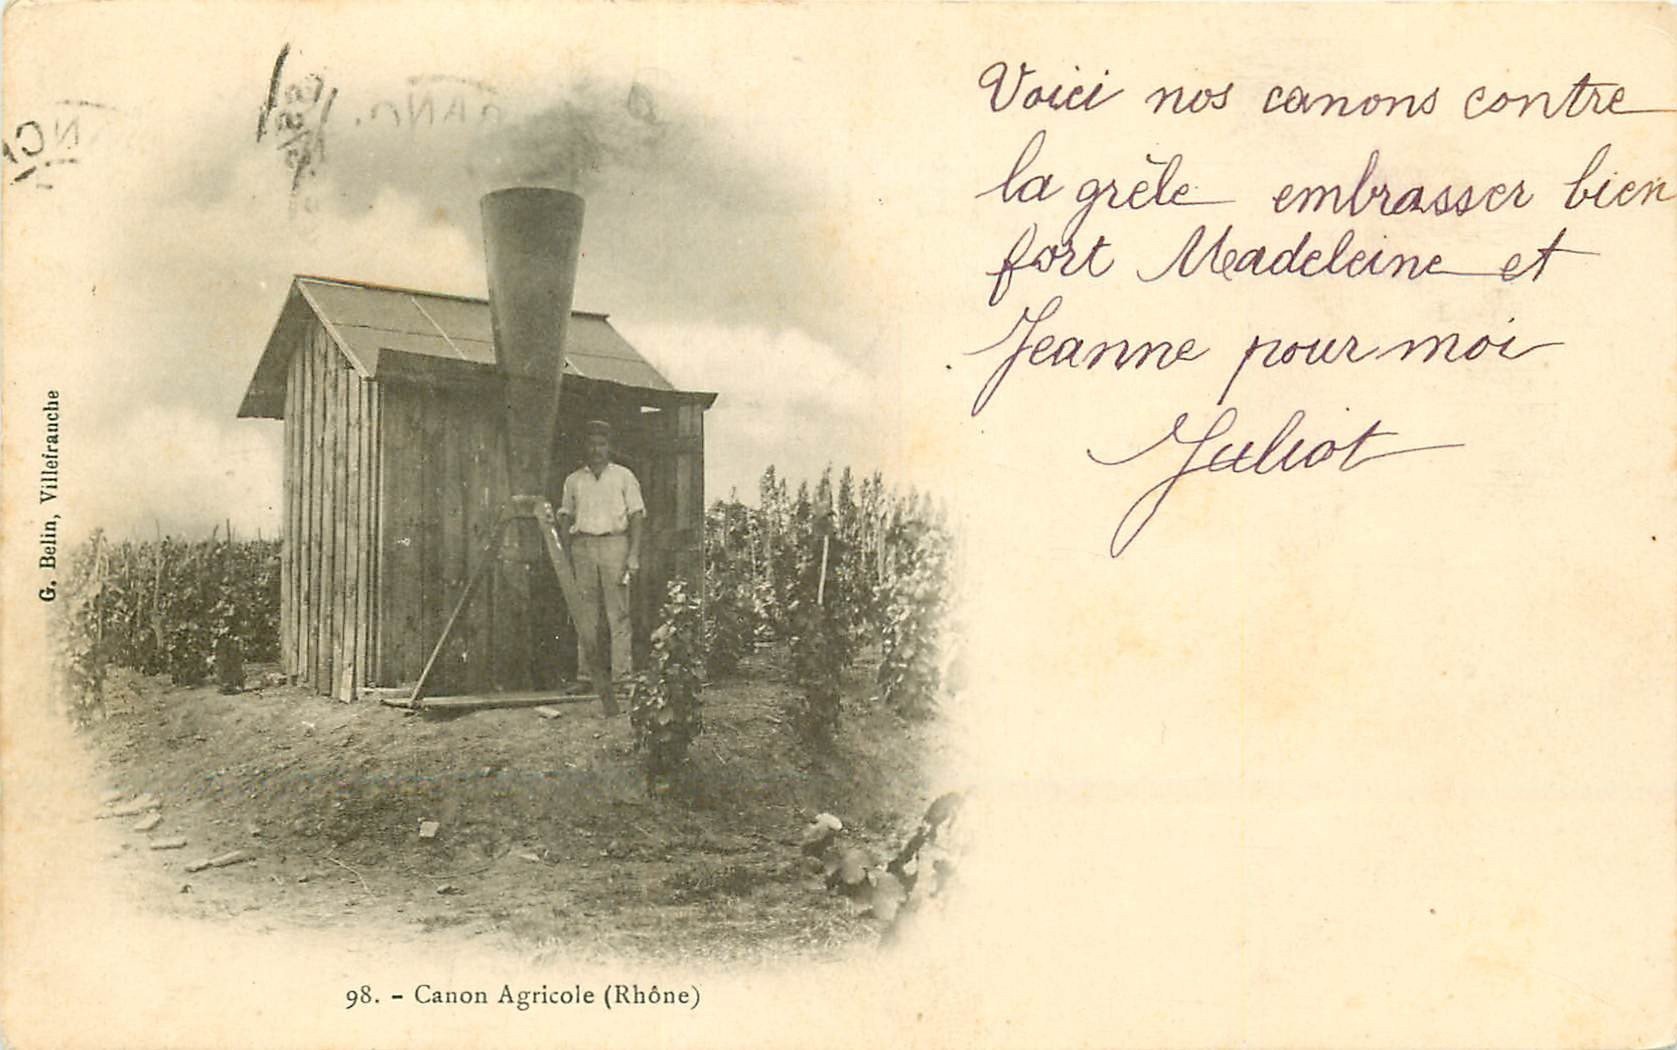 Voici nos canons contre
la grèle embrasser bien
fort Madeleine et
Jeanne pour moi
Juliot
G. Belin, Villefranche
98. - Canon Agricole (Rhône)